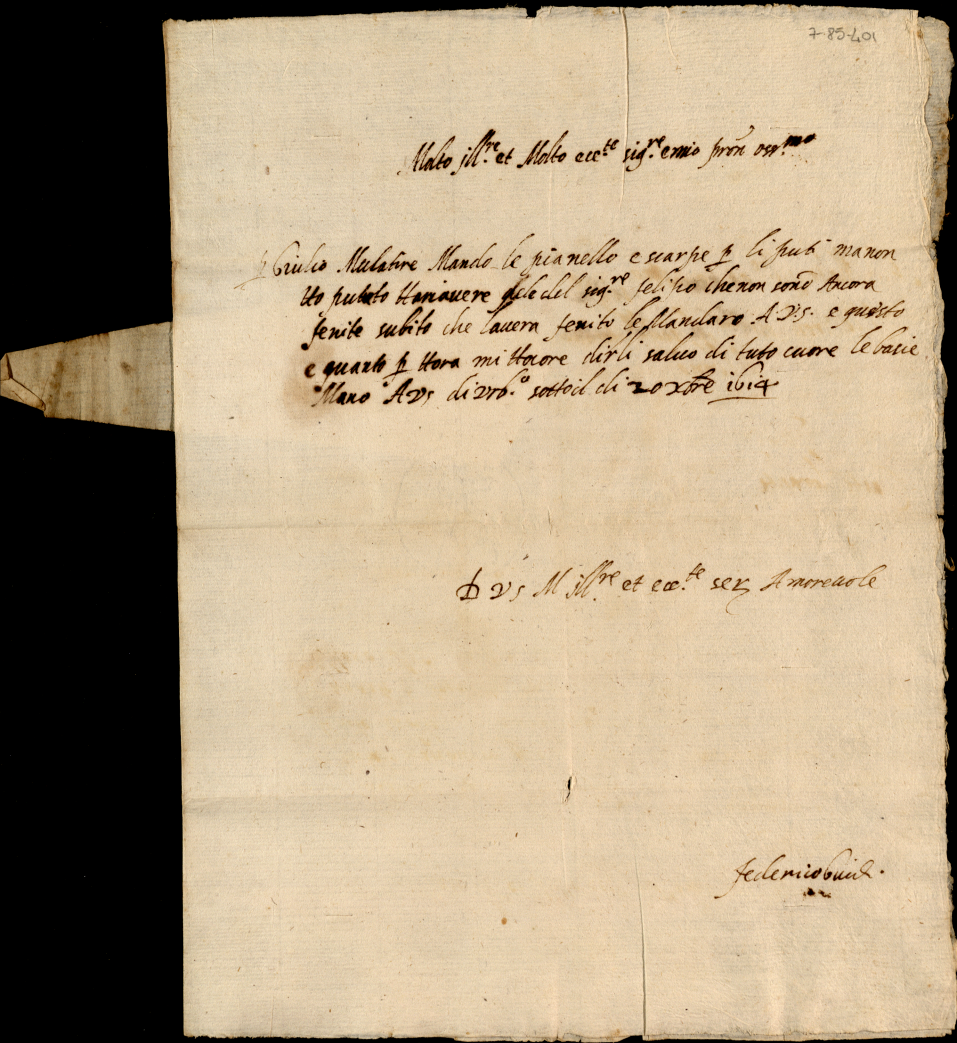 7-85-401
Molto Ill.re et Molto ecc.te sig.re e mio pron oss.mo
p Giulio Mulatire Mando le pianello e scarpe p li puti ma non
Ho pututo Hariavere del sig.re felipo che non sono Ancora
fenite subito che lavera fenito le Mandaro A VS. e questo
e quanto p Hora mi Hocore dirli salvo di tuto cuore le bacie
Mano A VS di Urb.o sotto il di 20 xbre 1614
D VS M Ill.re et ecc.te ser Amorevole
federico Guidi.